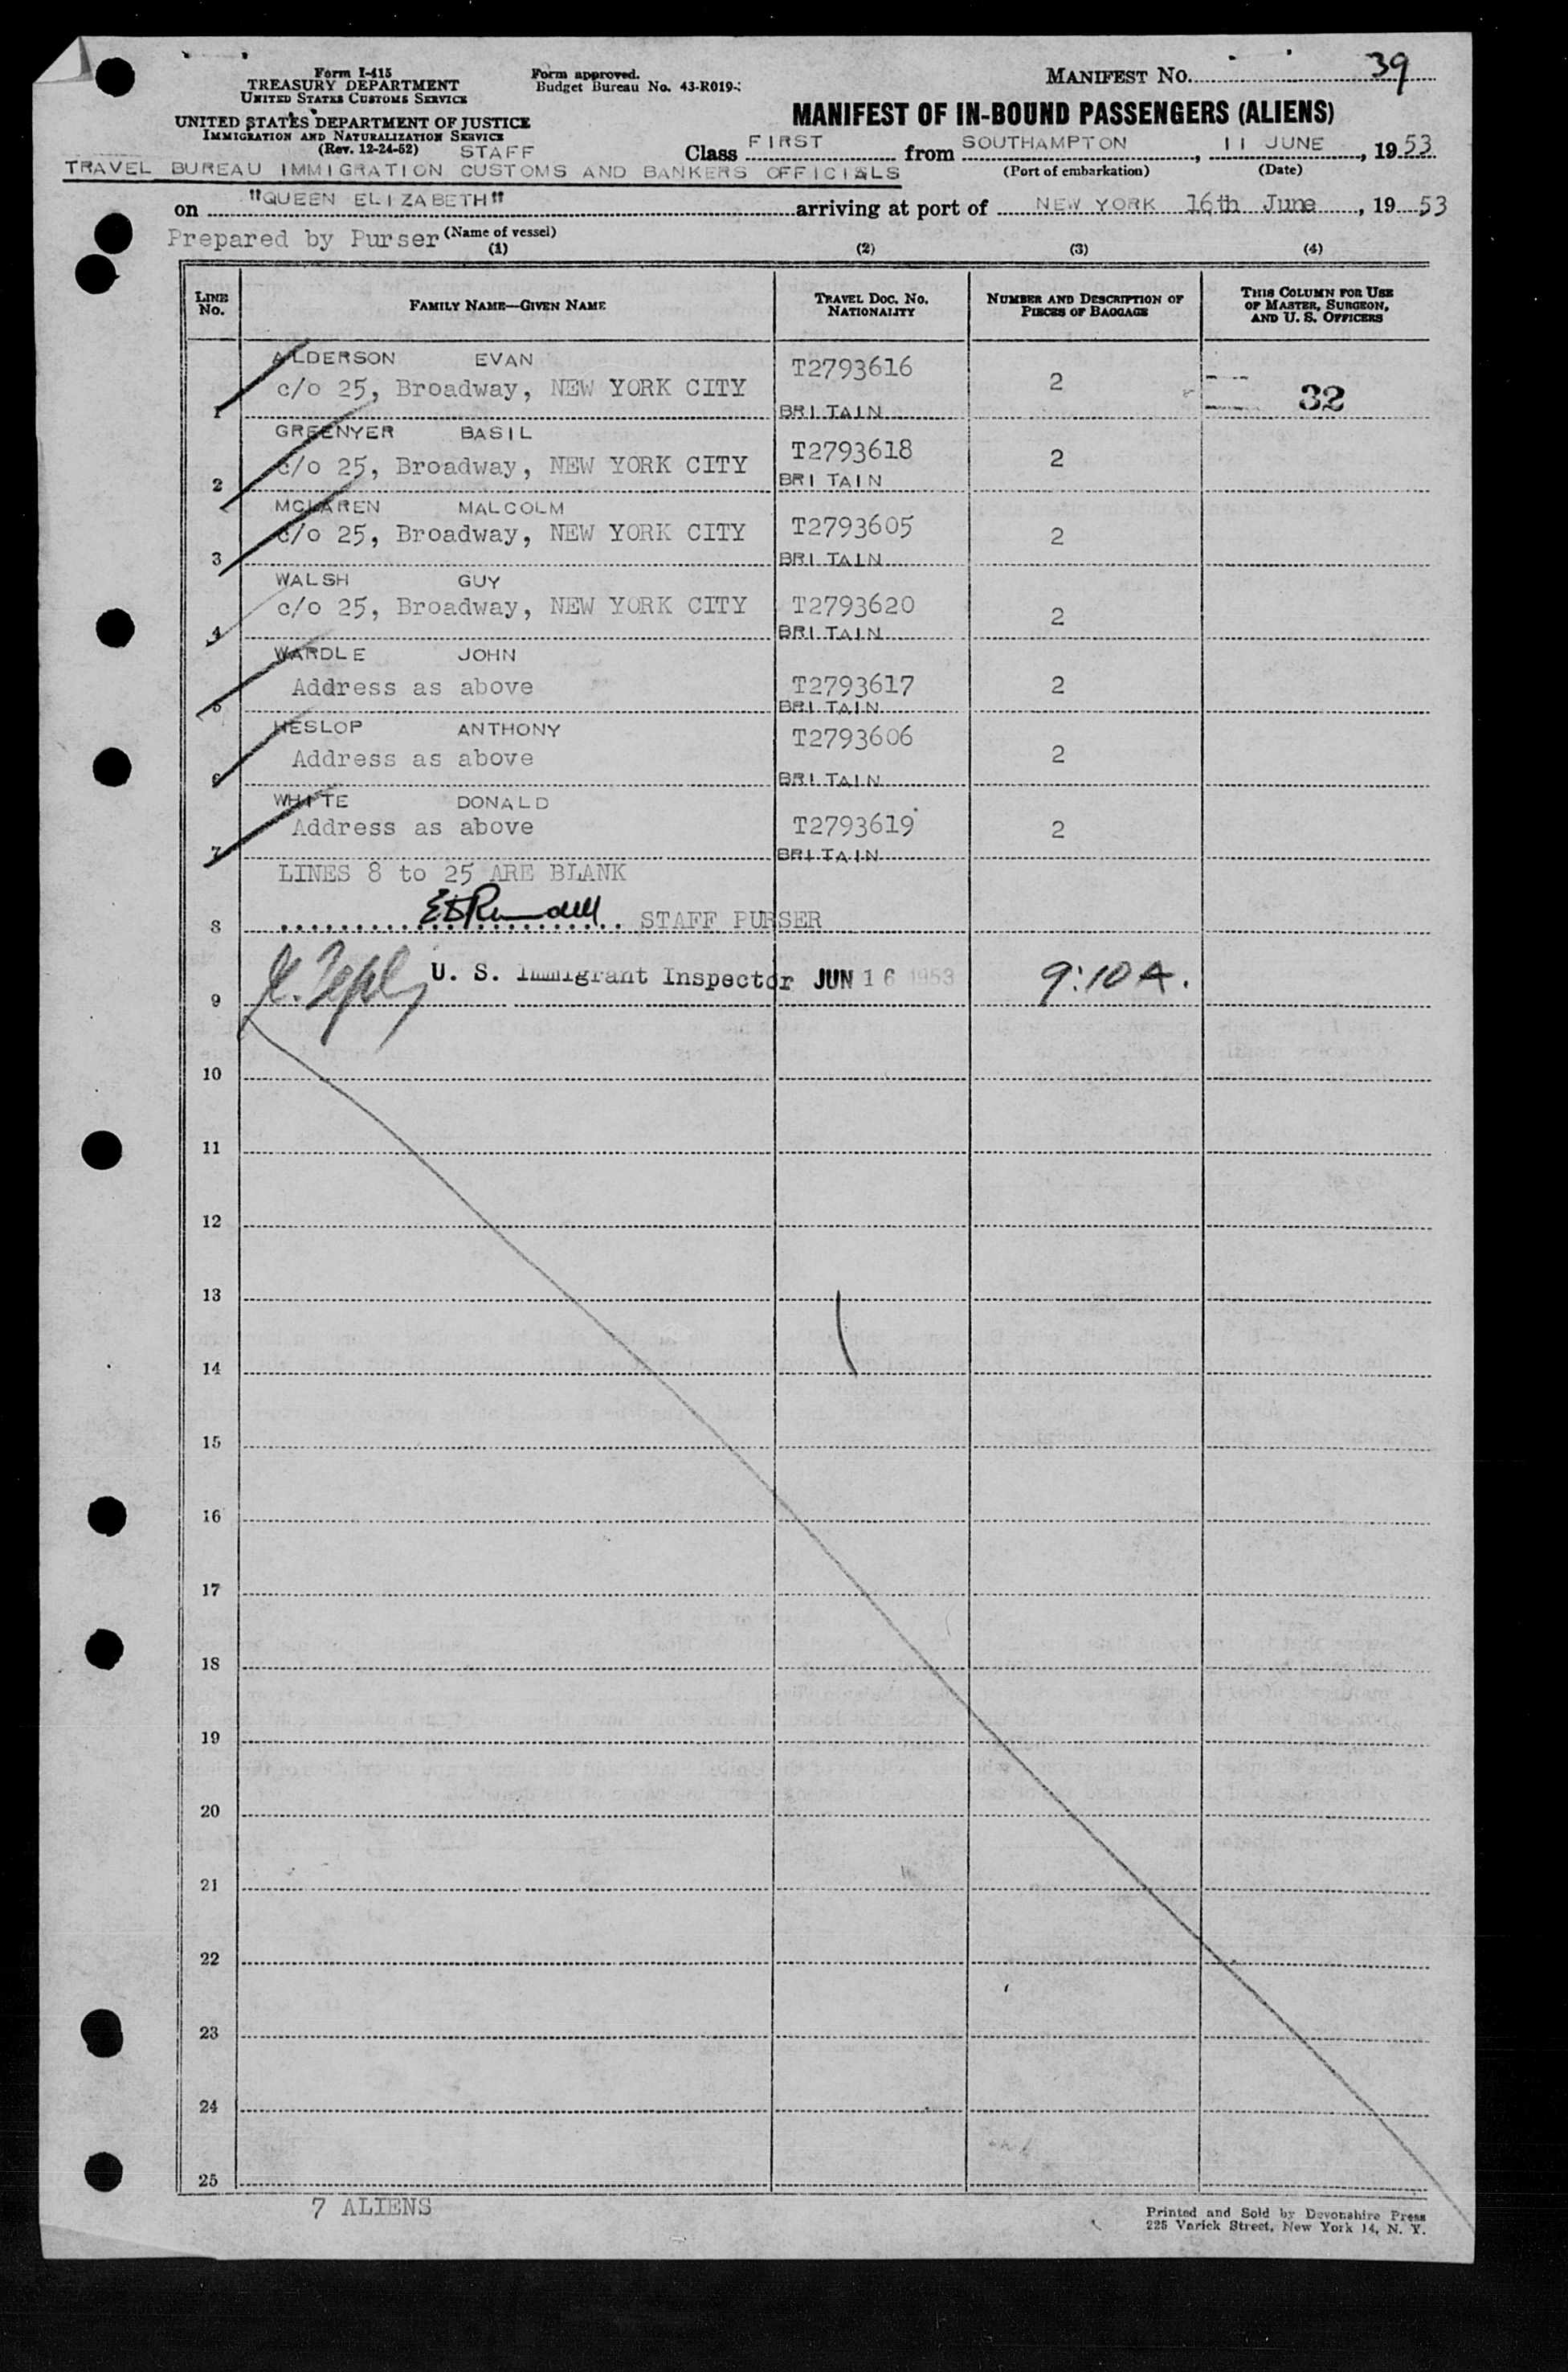 Form I-415
TREASURY DEPARTMENT
UNITED STATES CUSTOMS SERVICE
UNITED STATES DEPARTMENT OF JUSTICE
IMMIGRATION AND NATURALIZATION SERVICE
(Rev. 12-24-52) STAFF
Form approved.
Budget Bureau No. 43-R019-
MANIFEST NO. 39
MANIFEST OF IN-BOUND PASSENGERS (ALIENS)
Class FIRST from SOUTHAMPTON, 11 JUNE, 1953
(Port of embarkation) (Date)
TRAVEL BUREAU IMMIGRATION CUSTOMS AND BANKERS OFFICIALS
on "QUEEN ELIZABETH" arriving at port of NEW YORK 16th June, 1953
Prepared by Purser (Name of vessel)
(1) (2) (3) (4)
LINE NO. FAMILY NAME—GIVEN NAME TRAVEL DOC. NO. NATIONALITY NUMBER AND DESCRIPTION OF PIECES OF BAGGAGE THIS COLUMN FOR USE OF MASTER, SURGEON, AND U. S. OFFICERS
ALDERSON EVAN T2793616
1 c/o 25, Broadway, NEW YORK CITY BRITAIN 2 32
GREENYER BASIL T2793618
2 c/o 25, Broadway, NEW YORK CITY BRITAIN 2
MCLAREN MALCOLM T2793605
3 c/o 25, Broadway, NEW YORK CITY BRITAIN 2
WALSH GUY T2793620
4 c/o 25, Broadway, NEW YORK CITY BRITAIN 2
WARDLE JOHN T2793617
5 Address as above BRITAIN 2
HESLOP ANTHONY T2793606
6 Address as above BRITAIN 2
WHITE DONALD T2793619
7 Address as above BRITAIN 2
LINES 8 to 25 ARE BLANK
8 STAFF PURSER
9 U. S. Immigrant Inspector JUN 16 1953 9:10 A.
10
11
12
13
14
15
16
17
18
19
20
21
22
23
24
25
7 ALIENS
Printed and Sold by Devonshire Press
225 Varick Street, New York 14, N. Y.